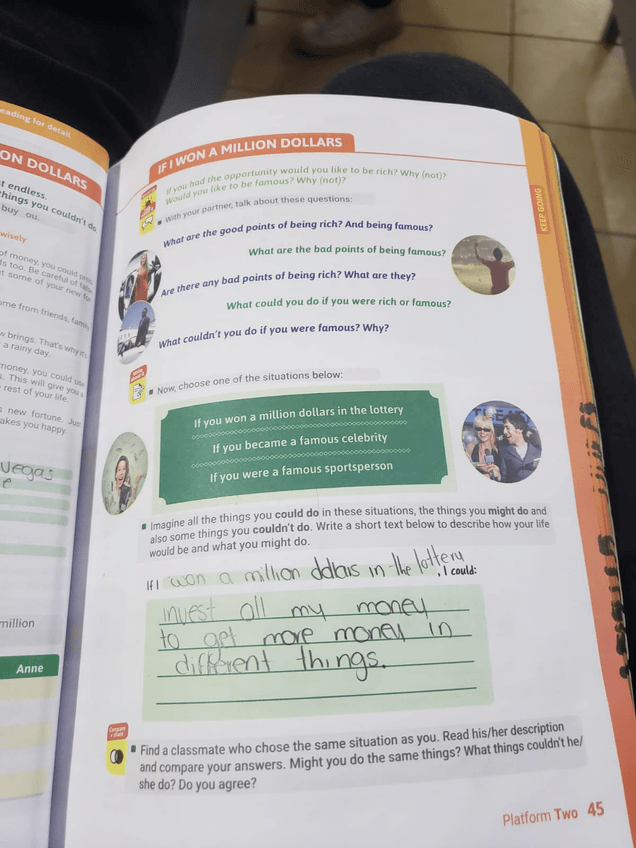 eading for detail
ON DOLLARS
t endless.
things you couldn't do
buy ou.
wisely
of money, you could
s too. Be careful of
t some of your new
ome from friends, family
w brings. That's why it's
a rainy day.
money, you could use
s. This will give you
rest of your life.
s new fortune. Just
akes you happy.
vegas
e
million
Anne
IF I WON A MILLION DOLLARS
If you had the opportunity would you like to be rich? Why (not)?
Would you like to be famous? Why (not)?
With your partner, talk about these questions:
What are the good points of being rich? And being famous?
What are the bad points of being famous?
Are there any bad points of being rich? What are they?
What could you do if you were rich or famous?
What couldn't you do if you were famous? Why?
Now, choose one of the situations below:
If you won a million dollars in the lottery
If you became a famous celebrity
If you were a famous sportsperson
THEATR
Imagine all the things you could do in these situations, the things you might do and
also some things you couldn't do. Write a short text below to describe how your life
would be and what you might do.
If I won a million dollars in the lottery, I could:
invest all my money
to get more money in
different things.
Compare
+ share
Find a classmate who chose the same situation as you. Read his/her description
and compare your answers. Might you do the same things? What things couldn't he/
she do? Do you agree?
Platform Two 45
KEEP GOING